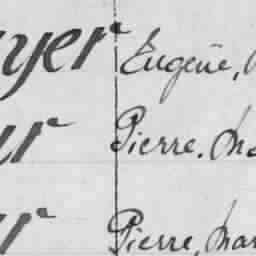 yer Eugène,
ur Pierre, Ma
r Pierre, Mar